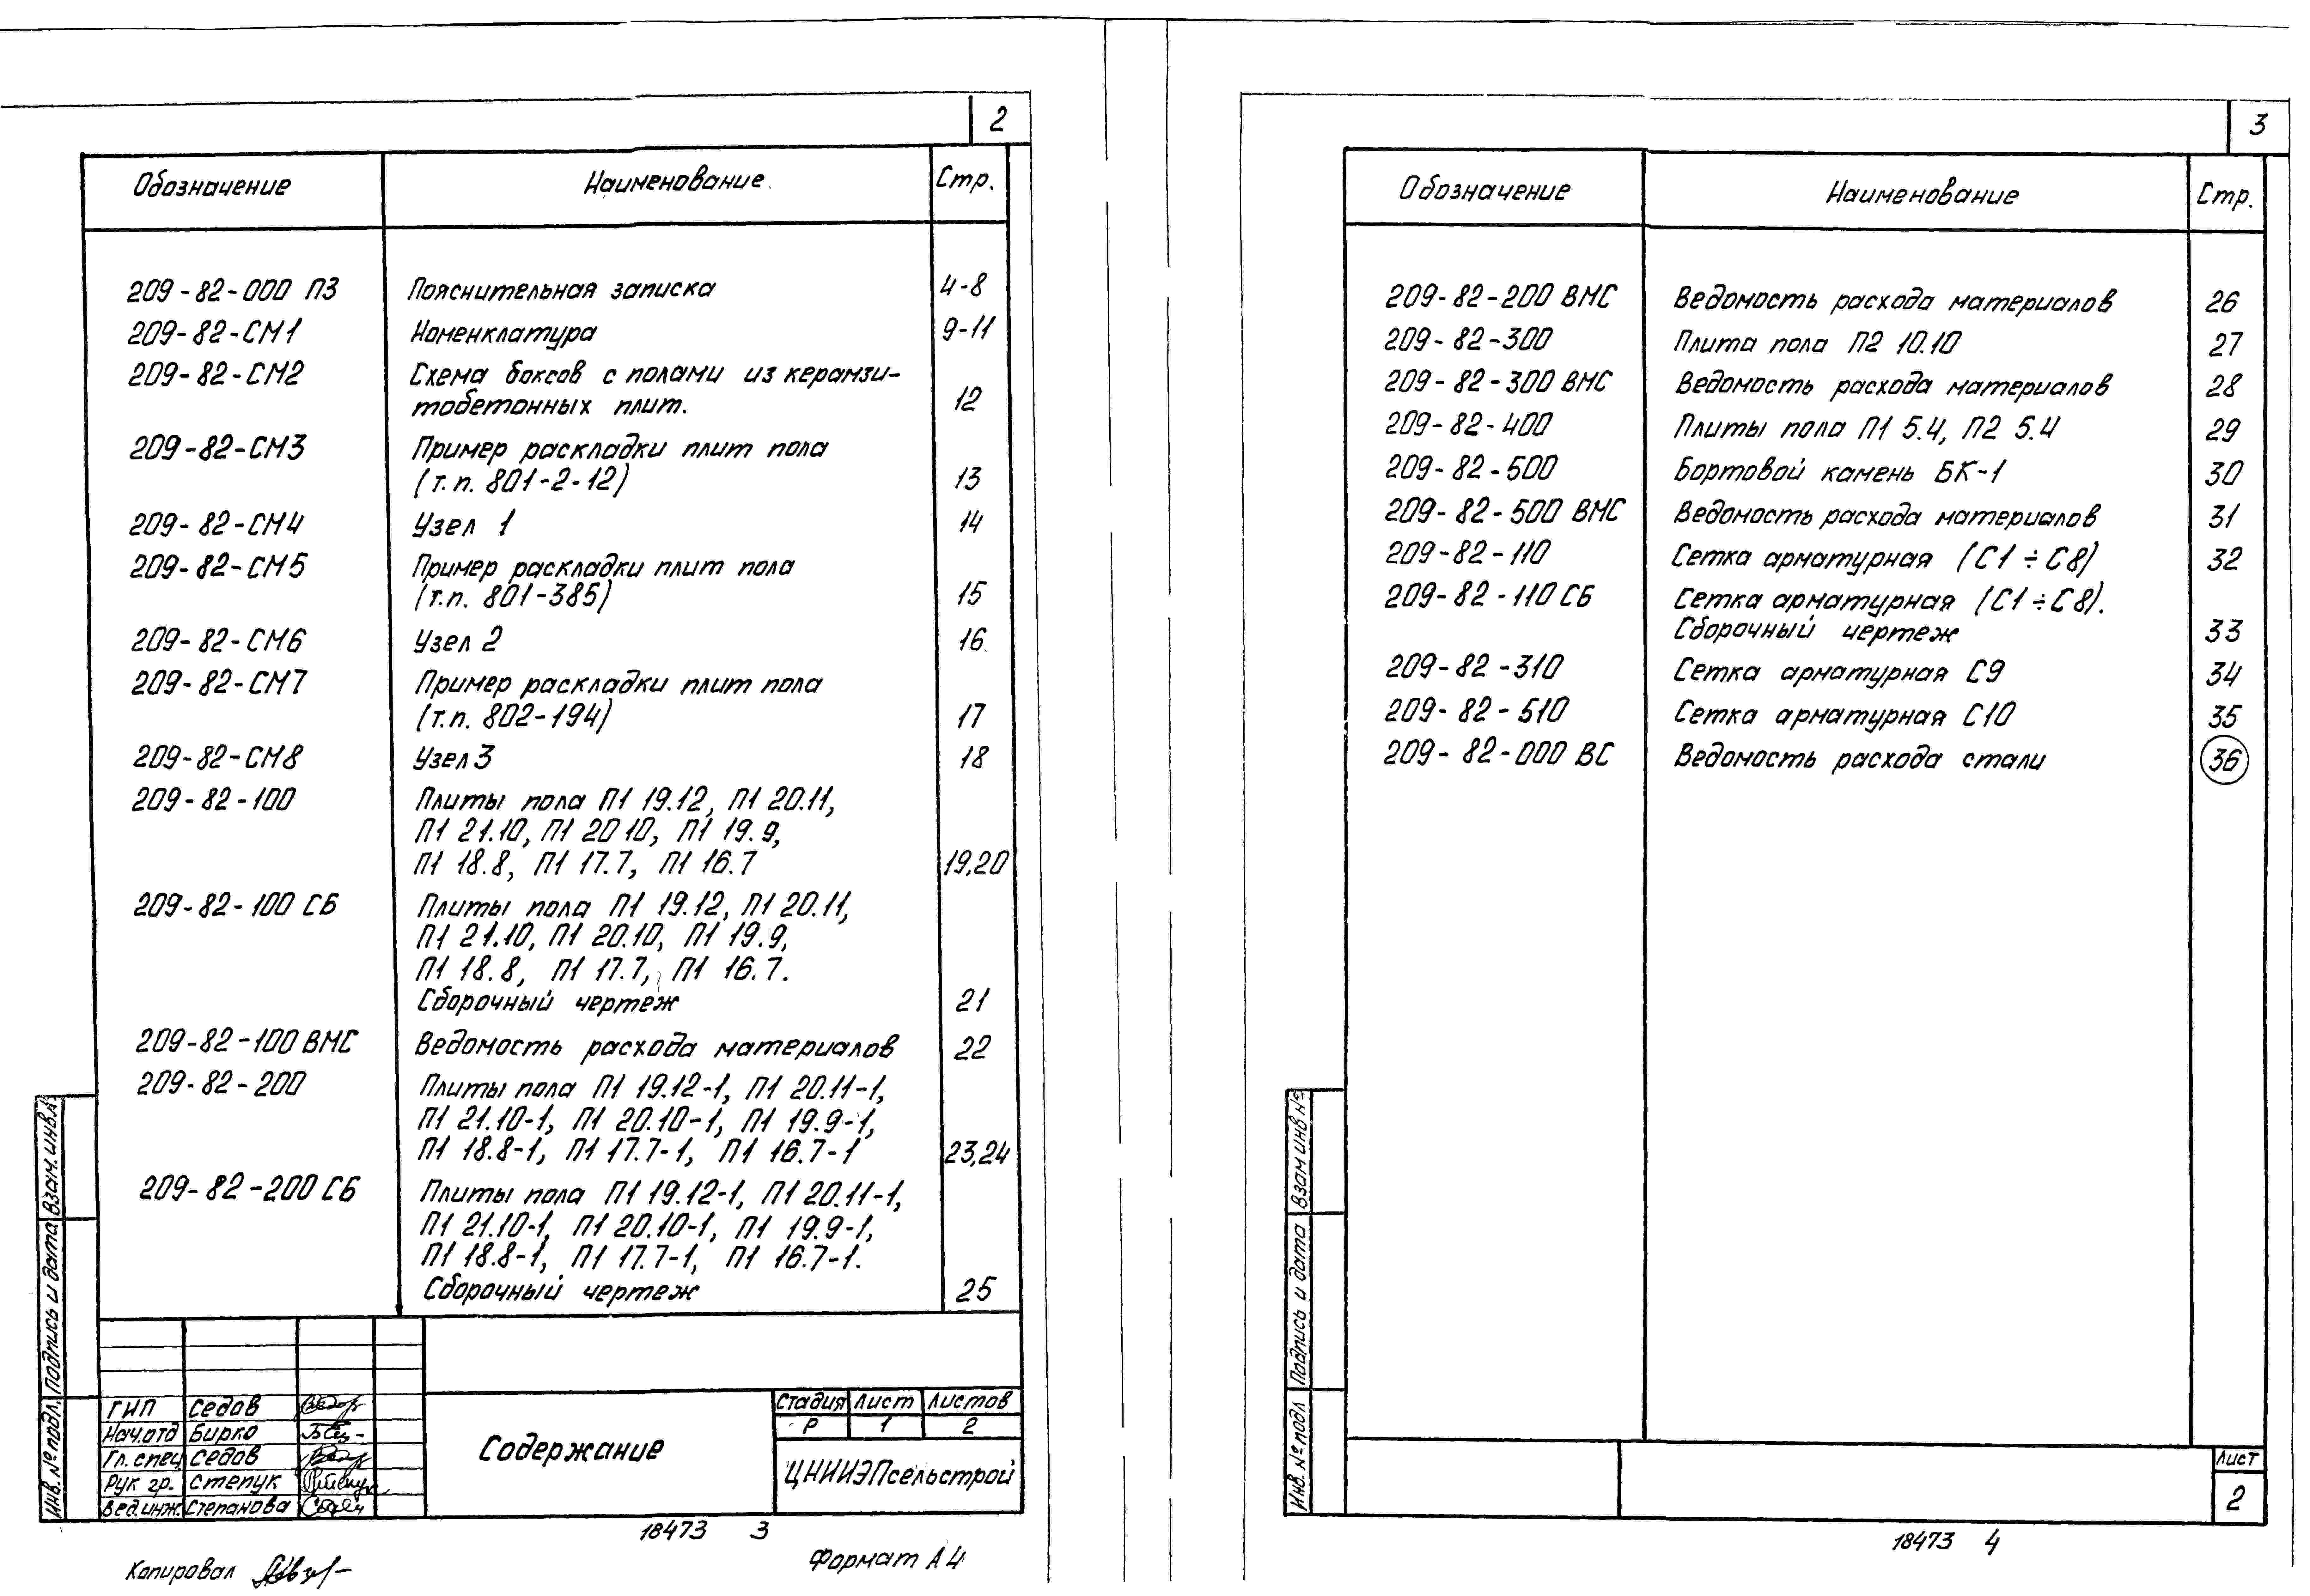 2
Обозначение Наименование Стр.
209-82-000 ПЗ Пояснительная записка 4-8
209-82-СМ1 Номенклатура 9-11
209-82-СМ2 Схема боксов с полами из керамзи-
тобетонных плит. 12
209-82-СМ3 Пример раскладки плит пола
(т.п. 801-2-12) 13
209-82-СМ4 Узел 1 14
209-82-СМ5 Пример раскладки плит пола
(т.п. 801-385) 15
209-82-СМ6 Узел 2 16
209-82-СМ7 Пример раскладки плит пола
(т.п. 802-194) 17
209-82-СМ8 Узел 3 18
209-82-100 Плиты пола П1 19.12, П1 20.11,
П1 21.10, П1 20 10, П1 19.9,
П1 18.8, П1 17.7, П1 16.7 19,20
209-82-100 СБ Плиты пола П1 19.12, П1 20.11,
П1 21.10, П1 20.10, П1 19.9,
П1 18.8, П1 17.7, П1 16.7.
Сборочный чертеж 21
209-82-100 ВМС Ведомость расхода материалов 22
209-82-200 Плиты пола П1 19.12-1, П1 20.11-1,
П1 21.10-1, П1 20.10-1, П1 19.9-1,
П1 18.8-1, П1 17.7-1, П1 16.7-1 23,24
209-82-200 СБ Плиты пола П1 19.12-1, П1 20.11-1,
П1 21.10-1, П1 20.10-1, П1 19.9-1,
П1 18.8-1, П1 17.7-1, П1 16.7-1.
Сборочный чертеж 25
Инв. № подл. Подпись и дата Взам. инв.№
ГИП Седов
Нач.отд Бирко
Гл. спец Седов
Рук гр. Степук
Вед.инж. Степанова
Содержание
Стадия Лист Листов
Р 1 2
ЦНИИЭПсельстрой
18473 3
Копировал
Формат А4
3
Обозначение Наименование Стр.
209-82-200 ВМС Ведомость расхода материалов 26
209-82-300 Плита пола П2 10.10 27
209-82-300 ВМС Ведомость расхода материалов 28
209-82-400 Плиты пола П1 5.4, П2 5.4 29
209-82-500 Бортовой камень БК-1 30
209-82-500 ВМС Ведомость расхода материалов 31
209-82-110 Сетка арматурная (С1÷С8) 32
209-82-110 СБ Сетка арматурная (С1÷С8).
Сборочный чертеж 33
209-82-310 Сетка арматурная С9 34
209-82-510 Сетка арматурная С10 35
209-82-000 ВС Ведомость расхода стали 36
Инв. № подл Подпись и дата Взам инв №
Лист
2
18473 4